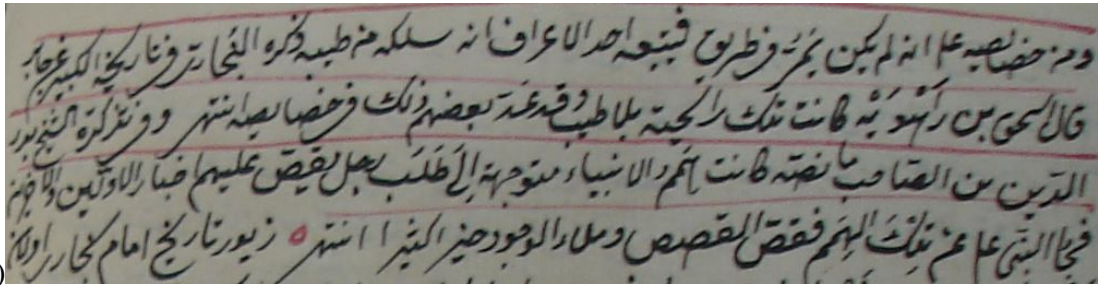 ومن خصايصه عم انه لم يكن يمر فى طريق فيتبعه احد الا عرف انه سلكه من طيبه ذكره البخارى فى تاريخه الكبير عن جابر
قال اسحق بن راهويه كانت تلك رايحته بلا طيب وقد عد بعضهم ذلك فى خصايصه انتهى وفى تذكرة الشيخ بدر
الدين بن الصاحب ما نصه كانت همم الانبياء متوجهة الى طلب رجل يقص عليهم اخبار الاولين والاخرين
فجاء النبى على عم تلك الهمم فقص القصص وملاء الوجود خيرا كثيرا انتهى زيور تاريخ امام بخارى اولان